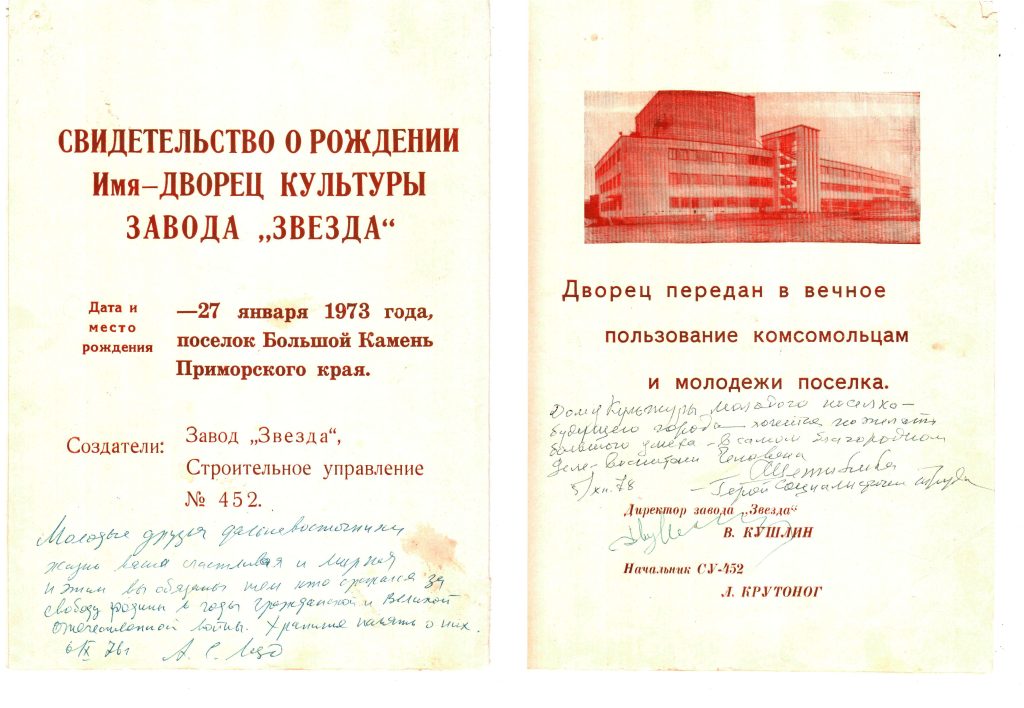 СВИДЕТЕЛЬСТВО О РОЖДЕНИИ
Имя–ДВОРЕЦ КУЛЬТУРЫ
ЗАВОДА „ЗВЕЗДА“
Дата и
место
рождения
—27 января 1973 года,
поселок Большой Камень
Приморского края.
Создатели:
Завод „Звезда“,
Строительное управление
№ 452.
Молодые друзья дальневосточники
жизнь ваша счастливая и мирная
и этим вы обязаны тем кто сражался за
свободу родины в годы Гражданской и Великой
Отечественной войны. Храните память о них.
6 IX 76 г А. С.
Дворец передан в вечное
пользование комсомольцам
и молодежи поселка.
Дому Культуры молодого поселка–
будущего города хочется пожелать
большого успеха – в самом благородном
деле – воспитании Человека
5/XII.78
– Герой Социалистичес Труда
Директор завода „Звезда“
В. КУШЛИН
Начальник СУ-452
Л. КРУТОНОГ